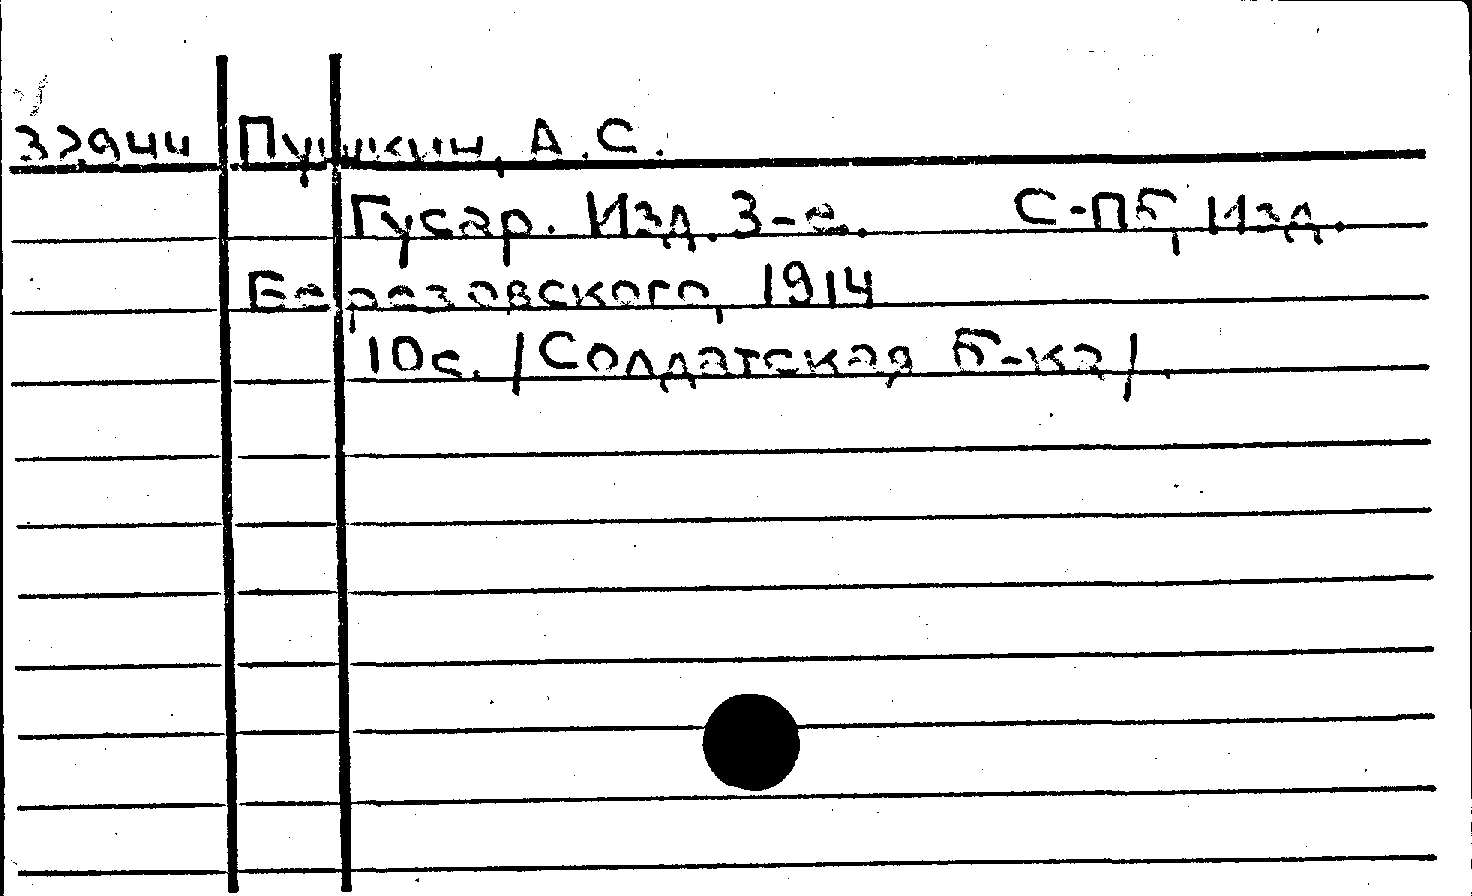 32944 Пушкин, А.С.
Гусар. Изд. 3-е. С-Пб, Изд.
Березовского, 1914
10с. /Солдатская б-ка/.